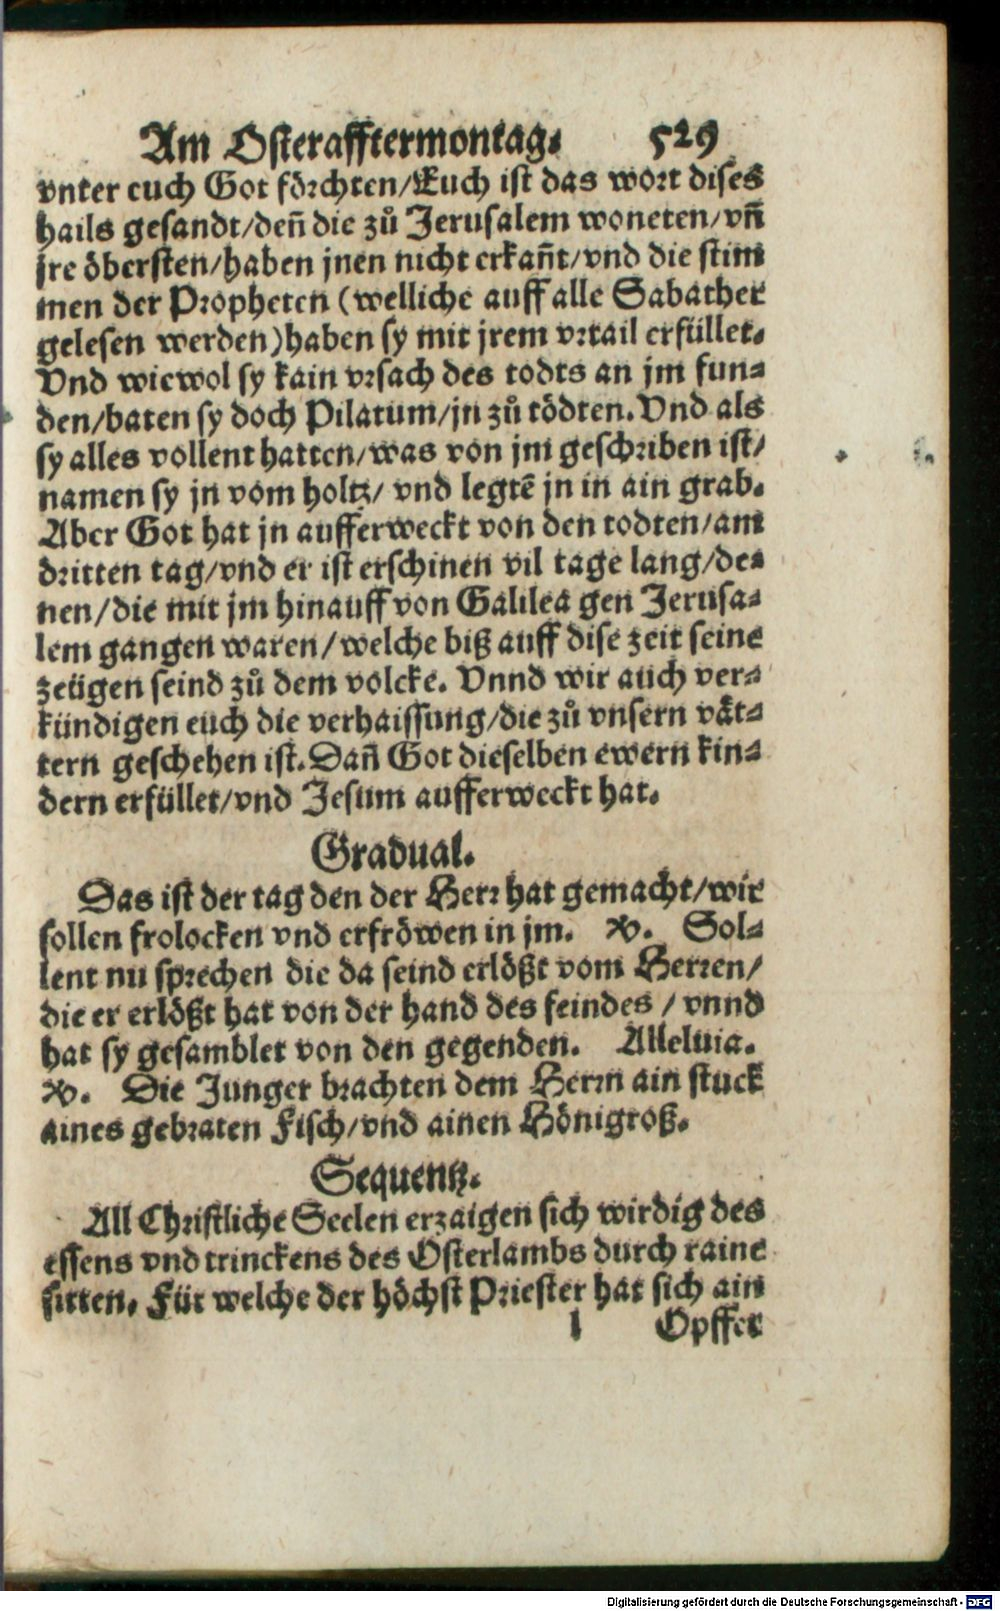 Am Osterafftermontag. 529
vnter euch Got förchten/Euch ist das wort dises
hails gesandt/deñ die zů Jerusalem woneten/vñ
jre öbersten/haben jnen nicht erkañt/vnd die stim
men der Propheten (welliche auff alle Sabather
gelesen werden)haben sy mit jrem vrtail erfüllet.
Vnd wiewol sy kain vrsach des todts an jm fun-
den/baten sy doch Pilatum/jn zů tödten. Vnd als
sy alles vollent hatten/was von jm geschriben ist/
namen sy jn vom holtz/ vnd legtē jn in ain grab.
Aber Got hat jn aufferweckt von den todten/am
dritten tag/vnd er ist erschinen vil tage lang/de-
nen/die mit jm hinauff von Galilea gen Jerusa-
lem gangen waren/welche biß auff dise zeit seine
zeügen seind zů dem volcke. Vnnd wir auch ver-
kündigen euch die verhaissung/die zů vnsern vät-
tern geschehen ist. Dañ Got dieselben ewern kin-
dern erfüllet/vnd Jesum aufferweckt hat.
Gradual.
Das ist der tag den der Herr hat gemacht/wir
sollen frolocken vnd erfröwen in jm. ℣. Sol-
lent nu sprechen die da seind erlößt vom Herren/
die er erlößt hat von der hand des feindes / vnnd
hat sy gesamblet von den gegenden. Alleluia.
℣. Die Junger brachten dem Herrn ain stuck
aines gebraten Fisch/vnd ainen Hönigroß.
Sequentz.
All Christliche Seelen erzaigen sich wirdig des
essens vnd trinckens des Osterlambs durch raine
sitten. Für welche der höchst Priester hat sich ain
l Opffer
Digitalisierung gefördert durch die Deutsche Forschungsgemeinschaft - DFG